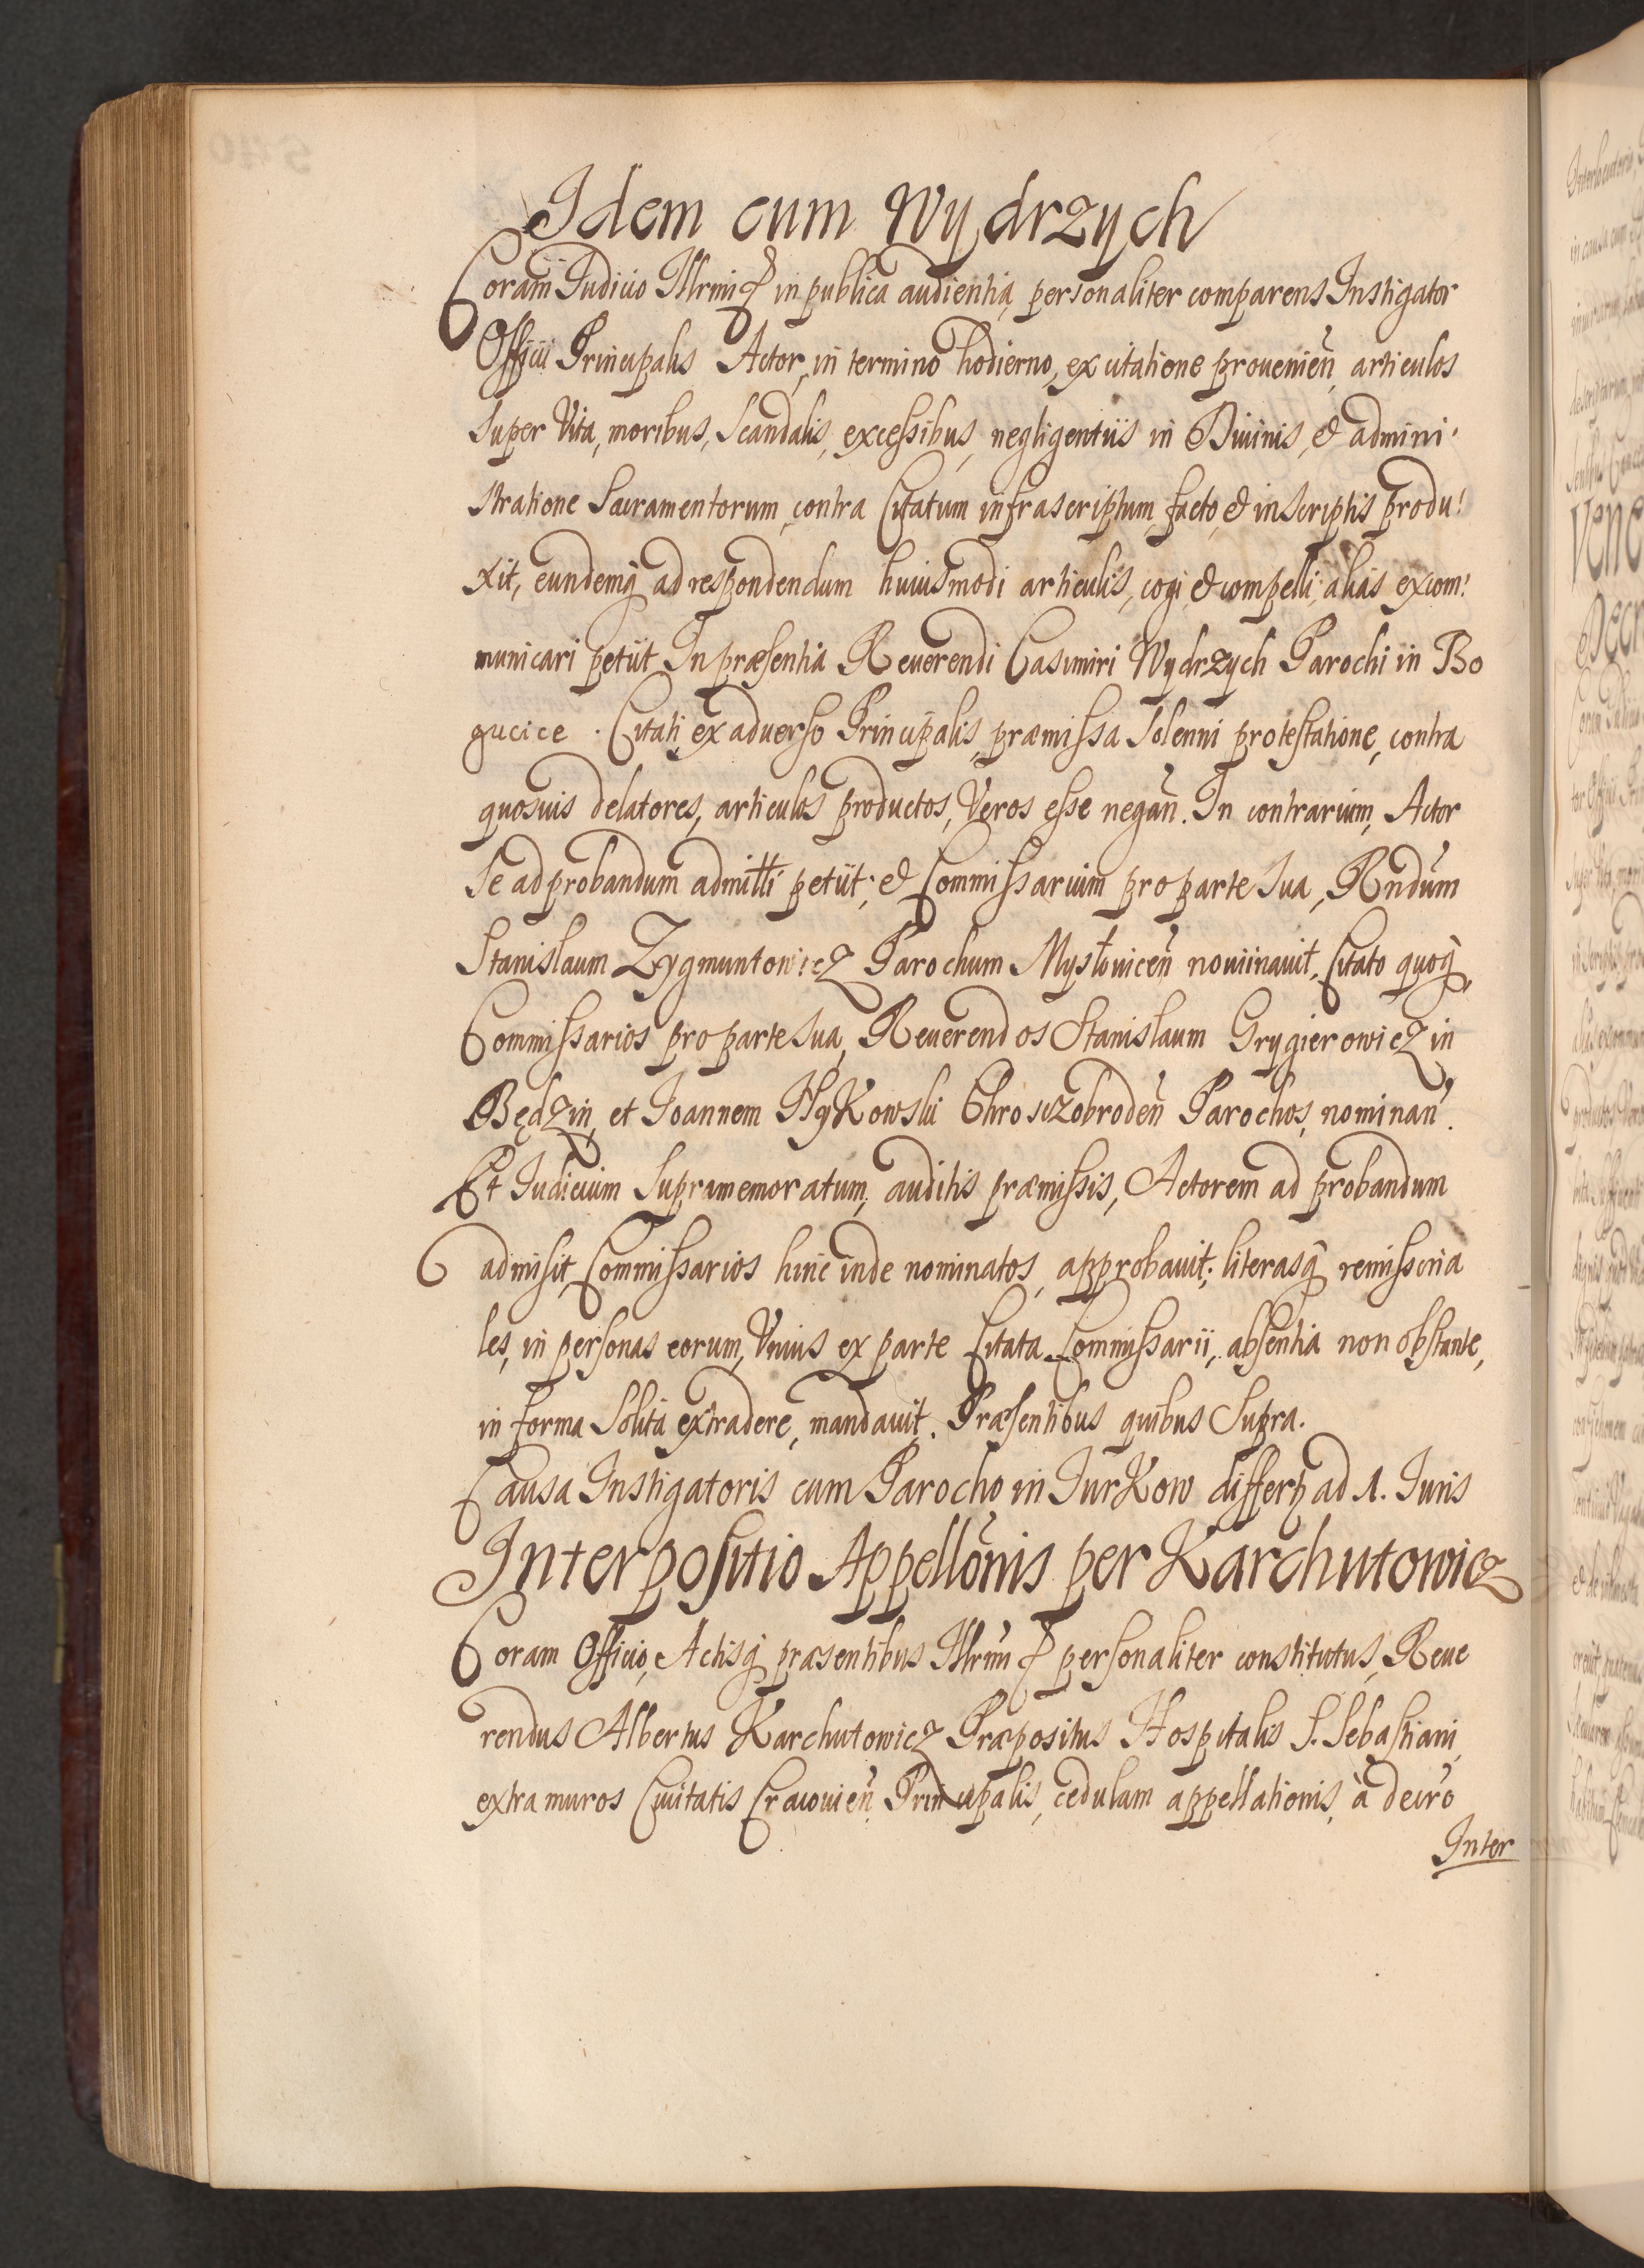 Idem cum Wydrzych
Coram Iudicio Illrmi ꝑ in publica audientia, personaliter comparens Instigator
Officii Principalis Actor, in termino hodierno, ex citatione prouenien̄, articulos
super Vita, moribus, Scandalis, excessibus, negligentiis in Diuinis, & admini-
stratione Sacramentorum, contra Citatum infrascriptum facto, & in scriptis produ-
xit, eundemq̃ ad respondendum huiusmodi articulis, cogi, & compelli, alias excom-
municari petiit. In præsentia Reuerendi Casimiri Wydrzych Parochi in Bo
gucice. Citati, ex aduerso Principalis, præmissa Solenni protestatione, contra
quosuis delatores, articulos productos, Veros esse negan̄. In contrarium, Actor
se ad probandum admitti petiit; & Commissarium pro parte sua, Rndum
Stanislaum Zygmuntowicz Parochum Mysłouicen̄ nominauit, Citato quoq̃,
Commissarios pro parte sua, Reuerendos Stanislaum Grygierowicz in
Będzin, et Ioannem Hykowski Chroszczobroden̄ Parochos, nominan̄.
Et Iudicium Supramemoratum, auditis præmissis, Actorem ad probandum
admisit, Commissarios hinc inde nominatos, approbauit; literasq̃ remissoria
les, in personas eorum, Vnius ex parte Citata Commissarii, absentia non obstante,
in forma Solita extradere, mandauit. Præsentibus quibus Supra.
Causa Instigatoris cum Parocho in Iurkow differtꝫ ad 1. Iuris
Interpositio Appellōnis per Karchutowicz
Coram Officio, Actisq̃ præsentibus Illrmi ꝑ personaliter constitutus, Reue
rendus Albertus Karchutowicz Præpositus Hospitalis S. Sebastiani,
extra muros Ciuitatis Cracouien̄, Principalis, cedulam appellationis, à decrō
Inter